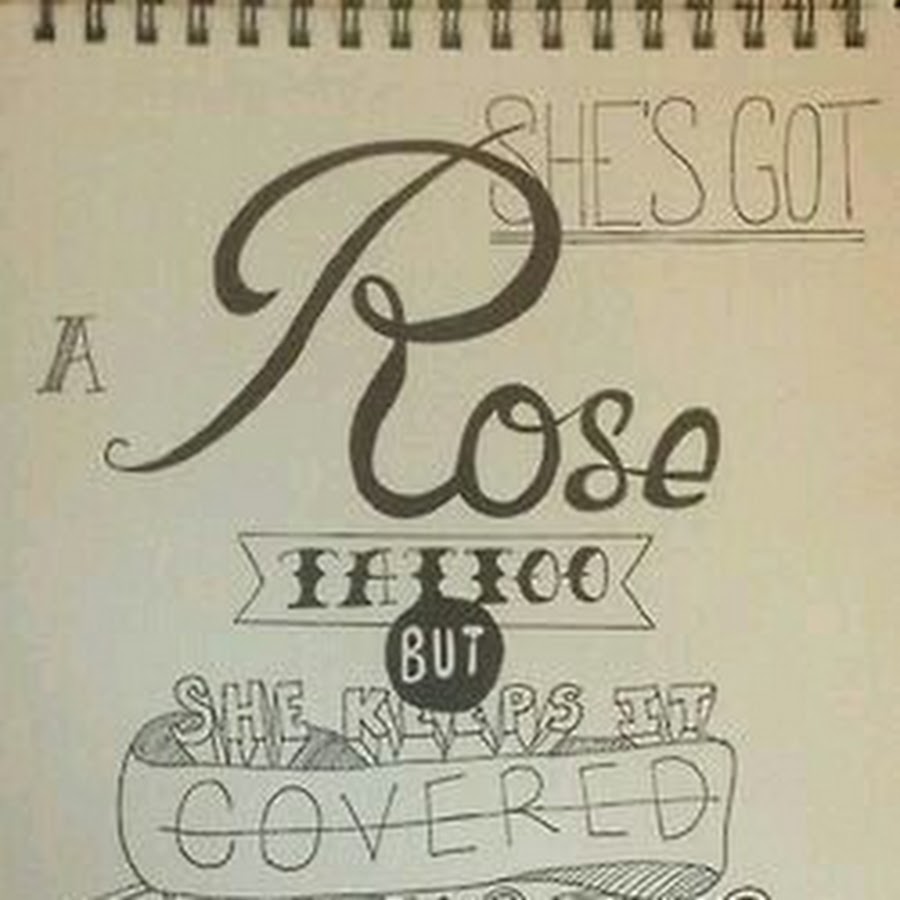 SHE'S GOT
A Rose
TATTOO
BUT
SHE KEEPS IT
COVERED